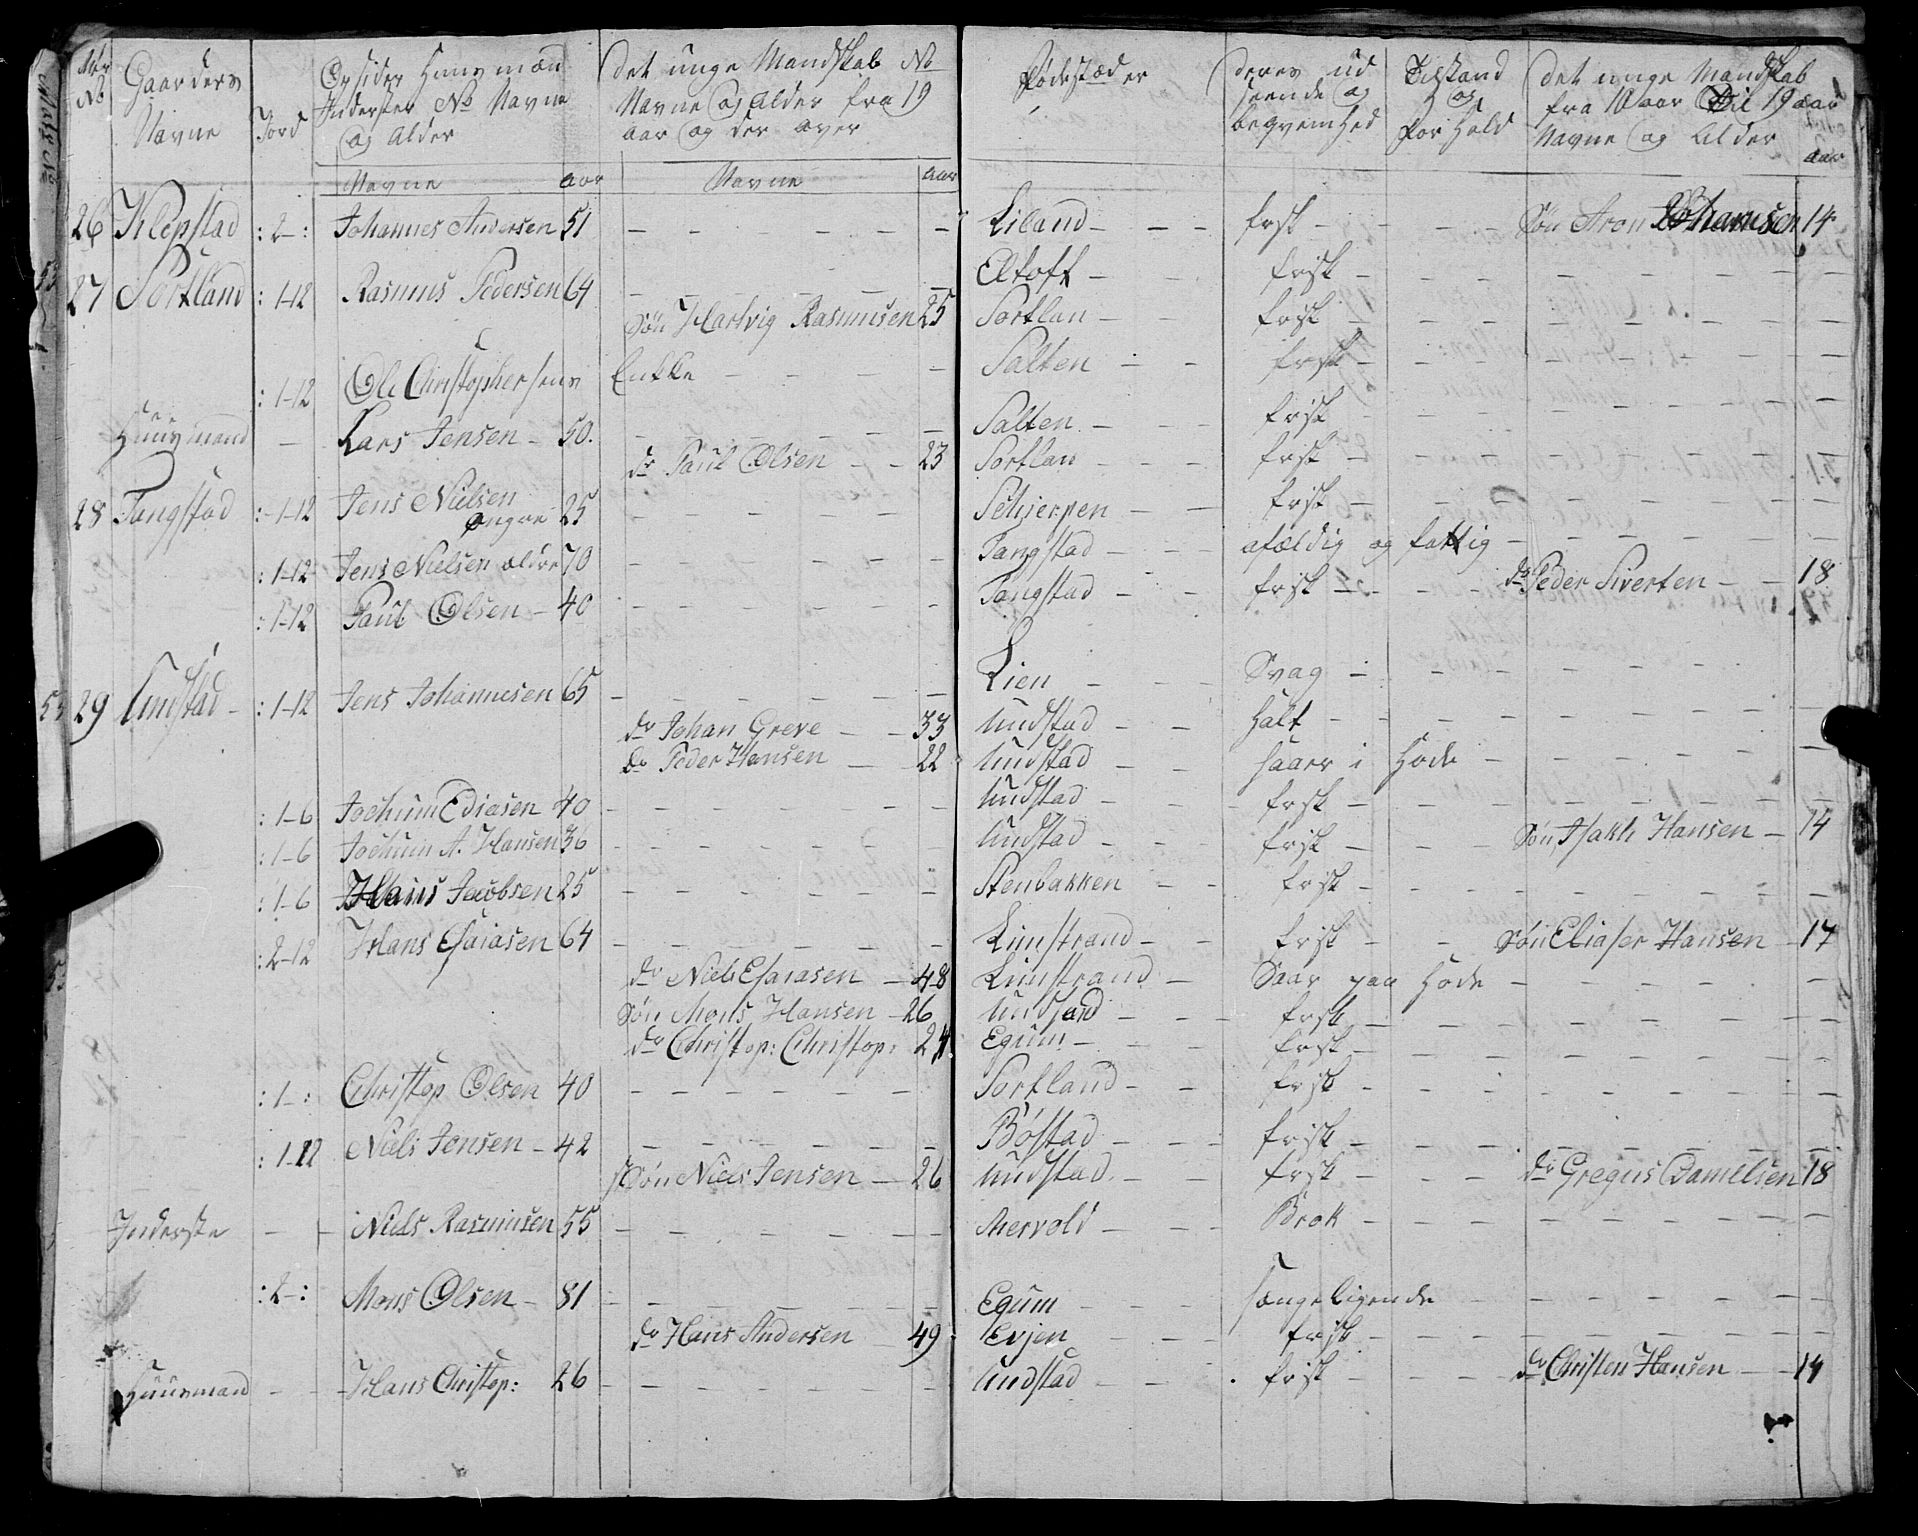 Mtr No | Gaarders Navne | Jord | Opsider Huusmænd Inderster No Navne og Alder | Det unge Mandskab No Navne og Alder fra 19 aar og der over | Fødestæder | deres ud seende og beqvemhed | Tilstand og Forhold | Det unge Mandskab fra 10 aar til 19 aar Navne og Alder
Navne | aar | Navne | aar | aar
26 Klepstad :2-: Johannes Andersen 51 | Liland | frsk | Søn Aron Johansen 14
27 Sortland :1-12 Rasmus Pedersen 64 | Eltoft | frisk
Søn Hartvig Rasmusen 25 | Sortlan | frisk
:1-12 Ole Christophersens Enkke | Salten | frsk
Huusmand Lars Jensen 50. | Salten | frisk
do Paul Olsen 23 | Sortlan | frisk
28 Tangstad :1-12 Jens Nielsen øngre 25 | Schjerpen | frisk
:1-12 Jens Nielsen ældre 70 | Tangstad | afældig og fattig
:1-12 Paul Olsen 40 | Tangstad | frisk | do Peder Siverten 18
29 Undstad :1-12 Jens Johannesen 65 | Lien | Svag
do Johan Greve 33 | Undstad | halt
do Peder Hansen 22 | Undstad | saaer i Hode
:1-6 Jochum Ediasen 40 | Undstad | frsk
:1-6 Jochum A. Hansen 36 | Undstad | frisk | Søn Isakh Hansen 14
:1-6 Hans Jacobsen 25 | Stenbakken | frisk
:2-12 Hans Esaiasen 64 | Limstrand | frisk | Søn Eliaser Hansen 17
do Niels Esaiasen 48 | Limstrand | Saar paa Hode
Søn Mons Hansen 26 | Undstad | frsk
do Christop: Christop: 24 | Egum | frsk
:1-: Christop Olsen 40 | Sortland | frisk
:1-12 Niels Jensen 42 | Bøstad | frisk
Søn Niels Jensen 26 | Undstad | frsk | do Gregus Danielsen 18
Inderste Niels Rasmusen 55 | Mervold | Brok
:2-: Mons Olsen 81 | Egum | sængeligende
do Hans Andersen 49 | Evjen | frisk
Huusmand Hans Christop: 26 | Undstad | frisk | do Christen Hansen 14